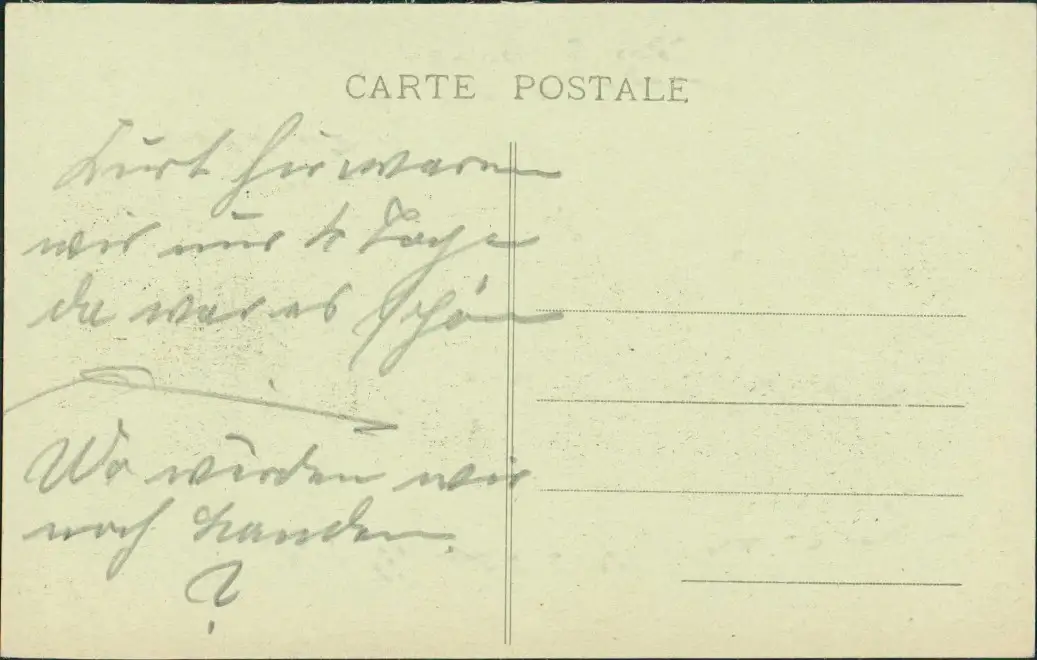 CARTE POSTALE
Kurt hier waren
wir nur 4 Tage
da war es schön
Wo würden wir
noch Landen.
?